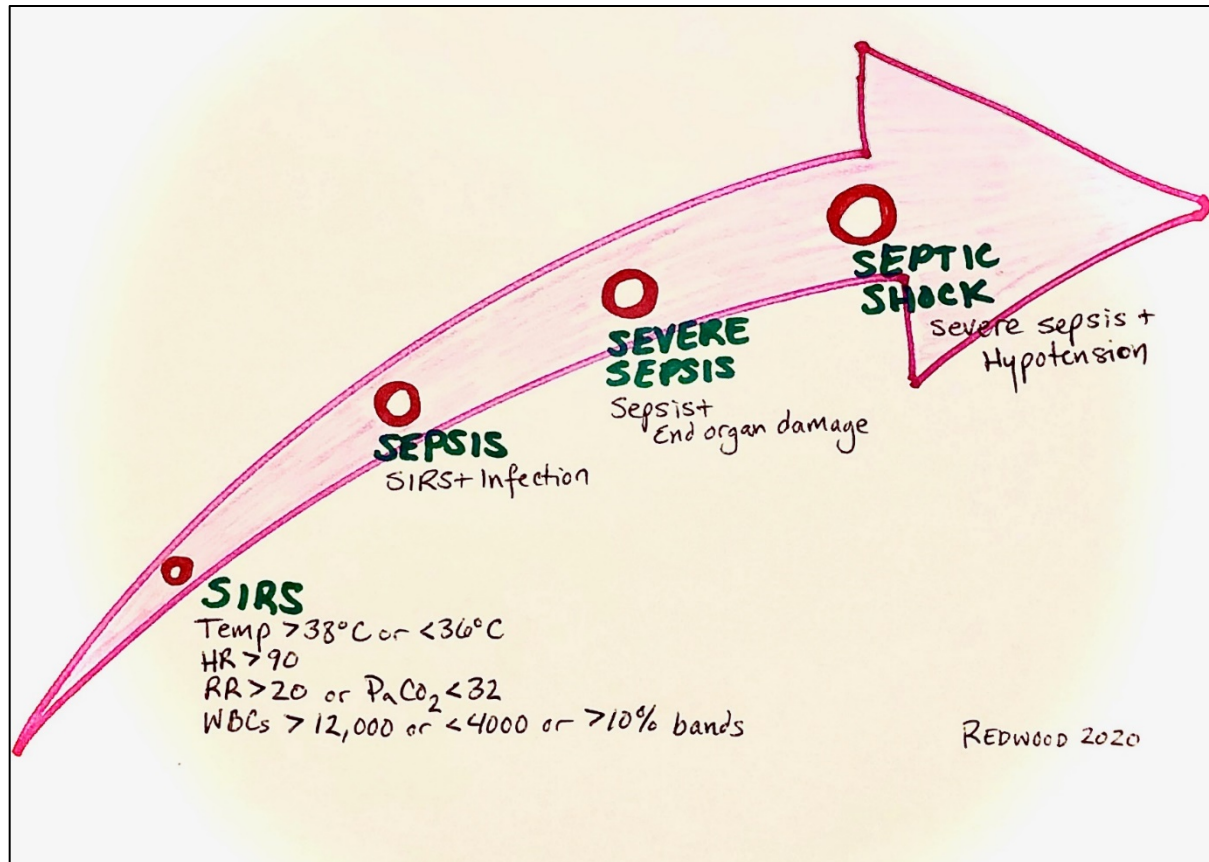 SIRS
Temp >38°C or <36°C
HR >90
RR >20 or PaCO₂ <32
WBCs > 12,000 or <4000 or >10% bands
SEPSIS
SIRS+ Infection
SEVERE
SEPSIS
Sepsis+
End organ damage
SEPTIC
SHOCK
Severe sepsis +
Hypotension
REDWOOD 2020